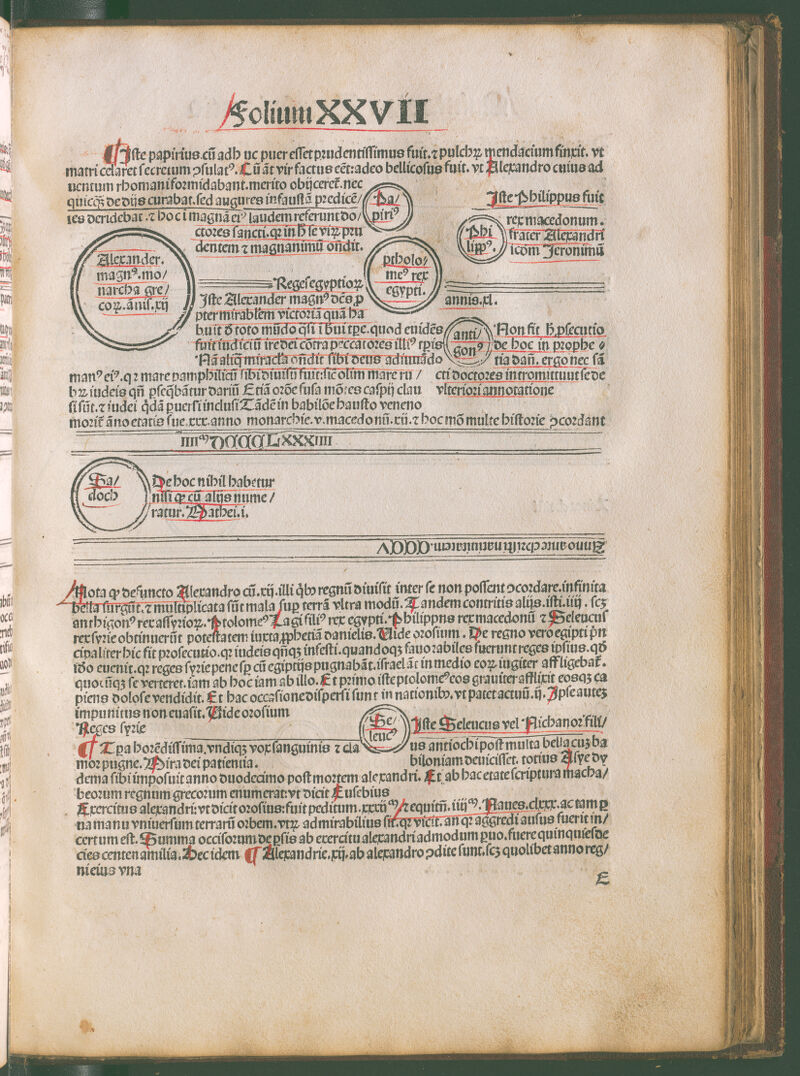 Folium XXVII
¶ Iste papirius.cū adhuc puer esset prudentissimus fuit.⁊ pulchꝝ mendacium finxit. vt
matri celaret secretum ↄsulatꝰ. Cū āt vir factus eēt: adeo bellicosus fuit. vt Alexandro cuius ad
uentum rhomani formidabant. merito obijceret. nec
quicꝗ̄ de dijs curabat. sed augures infaustā p̄dicē/
tes deridebat. ⁊ hoc i magnā eiꝰ laudem referunt do/
ctores sancti. qꝛ in h̄ se viꝝ pru
dentem ⁊ magnanimū ōndit.
Pa/
piriꝰ
Iste Philippus fuit
rex macedonum.
frater Alexandri
icōm Jeronimū
Phi
lippꝰ.
Alexander.
magnꝰ. mo/
narcha gre/
coꝝ. ānis. xij
ptholo/
meꝰ rex
egypti.
Reges egyptioꝝ
annis. xl.
Iste Alexander magnꝰ dc̄s ꝓ
pter mirabilem victoriā quā ha
buit d̄ toto mūdo q̄si i b̄ui tꝑe. quod euidēs
fuit iudiciū ire dei cōtra peccatores illiꝰ tꝑis
Nā aliq̄ miracla ōndit sibi deus adiuuādo
manꝰ eiꝰ. qꝛ mare pamphilicū sibi diuisū fuit: sic olim mare ru/
bꝝ iudeis qn̄ ꝑseq̄batur dariū Etiā orōe fusa mōtes caspij clau
si sūt. ⁊ iudei q̄dā ꝑuersi inclusi Tādē in babilōe hausto veneno
morit̄ āno etatis sue. xxx. anno monarchie. v. macedonū. xij. ⁊ hoc mō multe historie ↄcordant
anti/
gonꝰ
Non fit h̄ ꝓsecutio
de hoc in prophe
tia dan̄. ergo nec sā
cti doctores intromittunt se de
vlteriori annotatione
IIIIᵐ DCCCC LXXXIIII
Sa/
doch
De hoc nihil habetur
nisi ꝙ cū alijs nume/
ratur. Mathei. i.
Anno ante christi natiuitatem. CCCV
Nota ꝙ defuncto Alexandro cū. xij. illi q̄bꝰ regnū diuisit inter se non possent ↄcordare. infinita
bella surgūt. ⁊ multiplicata sūt mala suꝑ terrā vltra modū. Tandem contritis alijs. isti. iiij. scꝫ
anthigonꝰ rex assyrioꝝ. Ptolomeꝰ Lagi filiꝰ rex egypti. Philippus rex macedonū ⁊ Seleucus
rex syrie obtinuerūt potestatem iuxta ꝓphetiā danielis. Vide orosium. De regno vero egipti p̄n
cipaliter hic fit prosecutio. qꝛ iudeis qn̄qꝫ infesti. quandoqꝫ fauorabiles fuerunt reges ipsius. qd̄
iō euenit. qꝛ reges syrie pene sp̄ cū egiptijs pugnabāt. israel āt in medio eoꝝ iugiter affligebat̄.
quocūqꝫ se verteret. iam ab hoc iam ab illo. Et primo iste ptolomeꝰ eos grauiter afflixit eosqꝫ ca
piens dolose vendidit. Et hac occasione dispersi sunt in nationibꝰ. vt patet actuū. ij. Ipse autēꝫ
impunitus non euasit. Vide orosium
Reges syrie
Se/
leucꝰ
¶ Tꝑa horēdissima. vndiqꝫ vox sanguinis ⁊ cla
mor pugne. Mira dei patientia.
Iste Seleucus vel Nichanor fili/
us antiochi post multa bella cuꝫ ba
biloniam deuicisset. totius Asye dy
dema sibi imposuit anno duodecimo post mortem alexandri. Et ab hac etate scriptura macha/
beorum regnum grecorum enumerat: vt dicit Eusebius
Exercitus alexandri: vt dicit orosius: fuit peditum. xxxijᵐ ⁊ equitū. iiijᵐ. Naues. clxxx. ac tam ꝑ
ua manu vniuersum terrarū orbem. vtꝝ admirabilius sit. qꝛ vicit. an qꝛ aggredi ausus fuerit in/
certum est. Summa occisorum de ꝑsis ab exercitu alexandri admodum ꝑuo. fuere quinquiesde
cies centena milia. Hec idem ¶ Alexandrie. xij. ab alexandro ↄdite sunt. scꝫ quolibet anno reg/
ni eius vna
E